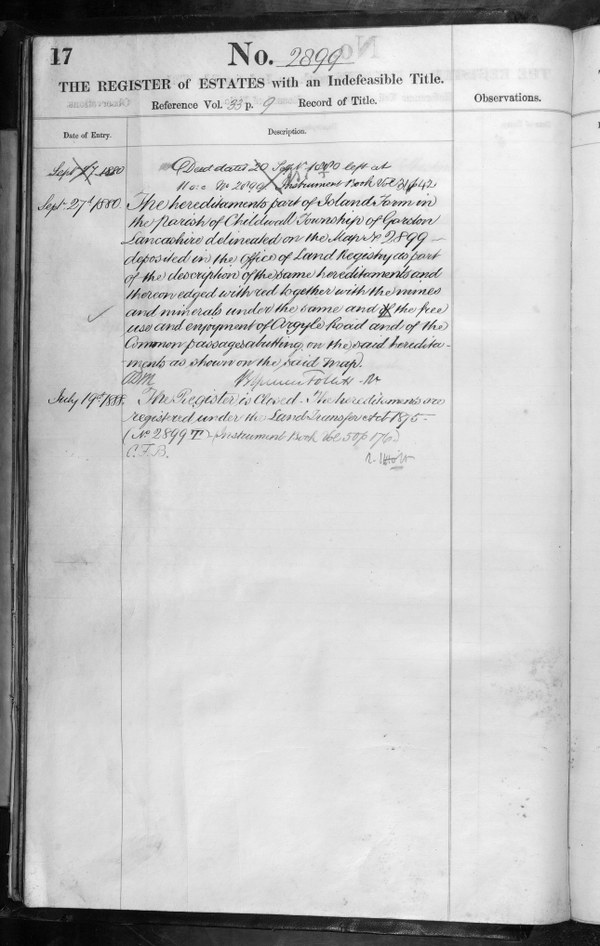 17
No. 2899
THE REGISTER of ESTATES with an Indefeasible Title.
Reference Vol. 33 p. 9 Record of Title.
Observations.
Date of Entry.
Description.
Sept 27 1880
Deed dated 20 left at
Instrument Book Vol 31 p 642
Sept. 27th 1880.
The hereditaments part of Island Farm in
the parish of Childwall Township of Garston
Lancashire delineated on the Map No 2899 —
deposited in the Office of Land Registry as part
of the description of the same hereditaments and
thereon edged with red together with the mines
and minerals under the same and of the free
use and enjoyment of Argyle Road and of the
Common passages abutting on the said heredita-
-ments as shown on the said Map.
July 19th 1888.
The Register is Closed. The hereditaments are
registered under the Land Transfer Act 1875 —
(No 2899 T) Instrument Book Vol 50 p 176)
C.F.B.